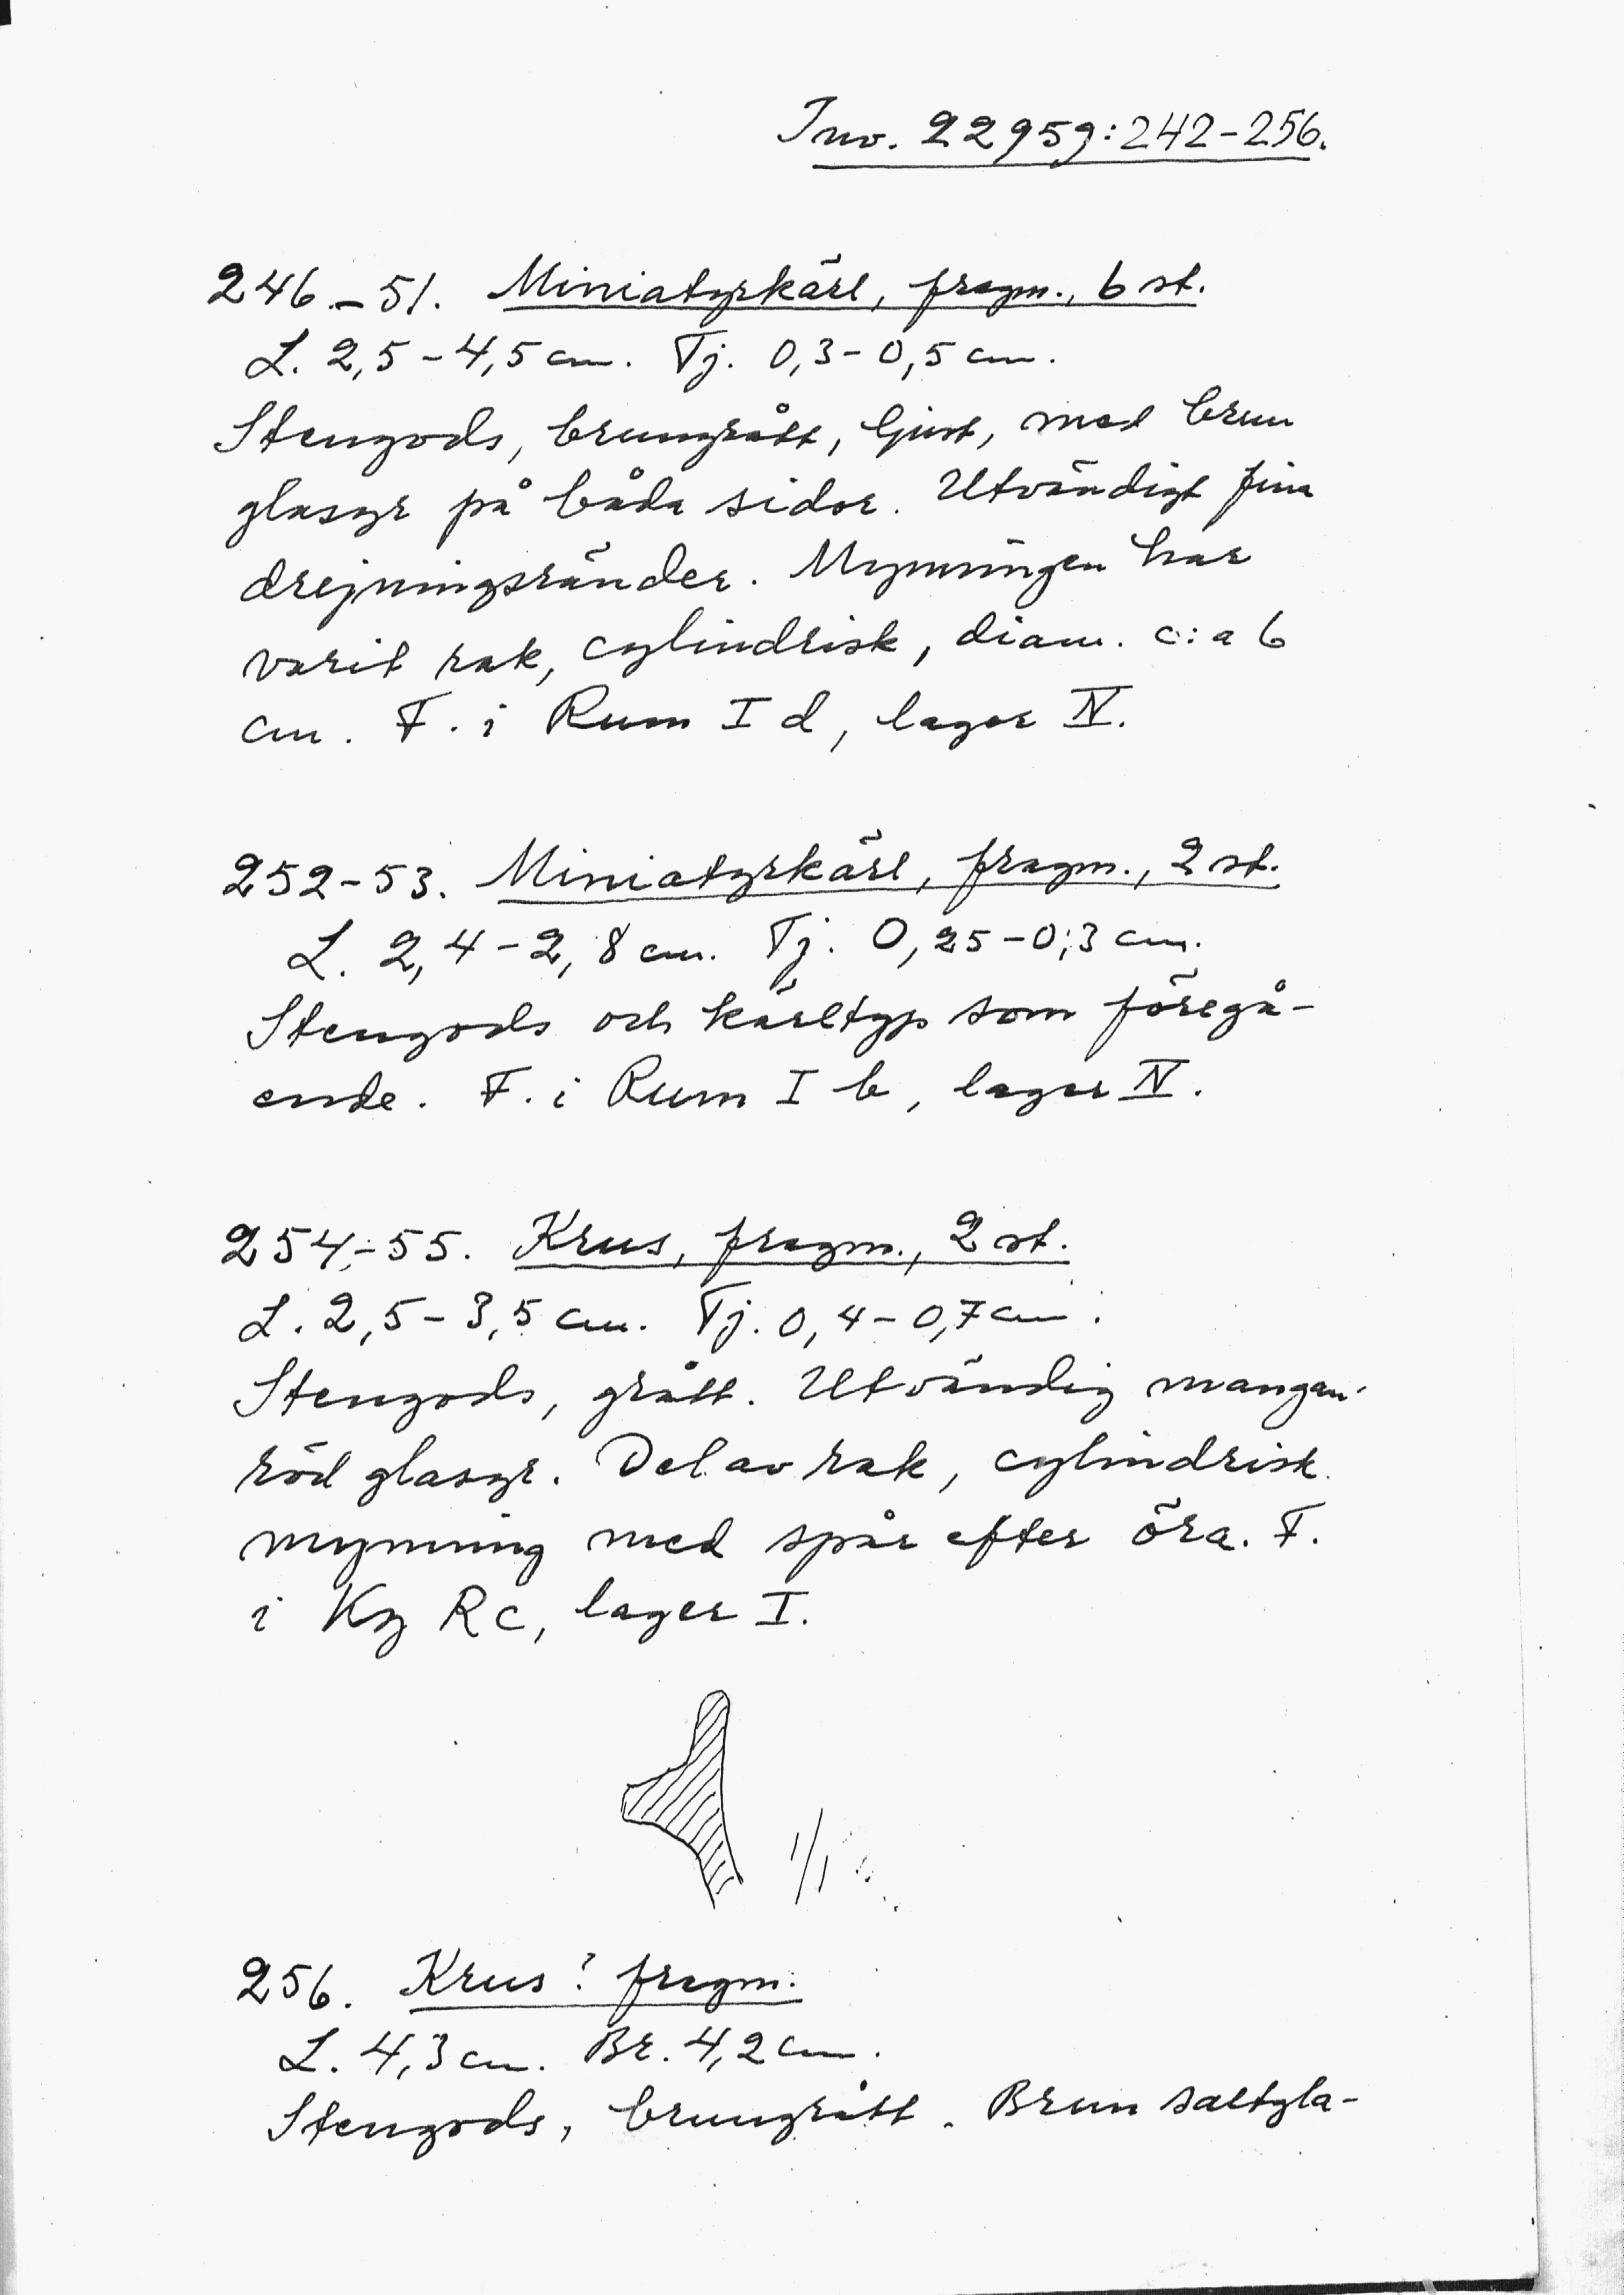 Inv. 22959:242-256.
246-51. Miniatyrkärl, fragm., 6 st.
L. 2,5-4,5 cm. Tj. 0,3-0,5 cm.
Stengods, brungrått, ljust, med brun
glasyr på båda sidor. Utvändigt fina
drejningsränder. Mynningen har
varit rak, cylindrisk, diam. c:a 6
cm. F. i Rum I d, lager IV.
252-53. Miniatyrkärl, fragm., 2 st.
L. 2,4-2,8 cm. Tj. 0,25-0,3 cm.
Stengods och kärltyp som föregå-
ende. F. i Rum I b, lager IV.
254-55. Krus, fragm., 2 st.
L. 2,5-3,5 cm. Tj. 0,4-0,7 cm.
Stengods, grått. Utvändig mangan-
röd glasyr. Del av rak, cylindrisk
mynning med spår efter öra. F.
i Kg Rc, lager I.
1/1
256. Krus? fragm.
L. 4,3 cm. Br. 4,2 cm.
Stengods, brungrått. Brun saltgla-